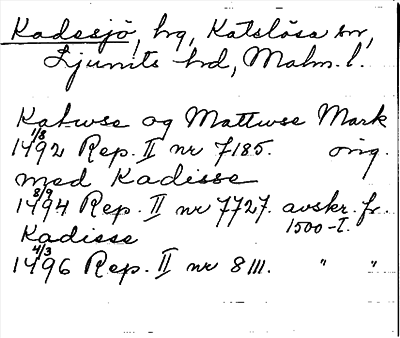 Kadesjö, hg, Katslösa sn,
Ljunits hd, Malm. l.
Katwse og Mattwse Mark
1/8
1492 Rep. II nr 7185. orig.
med Kadisse
8/9
1494 Rep. II nr 7727. avskr. fr.
1500-t.
Kadisse
4/3
1496 Rep. II nr 8111. " "